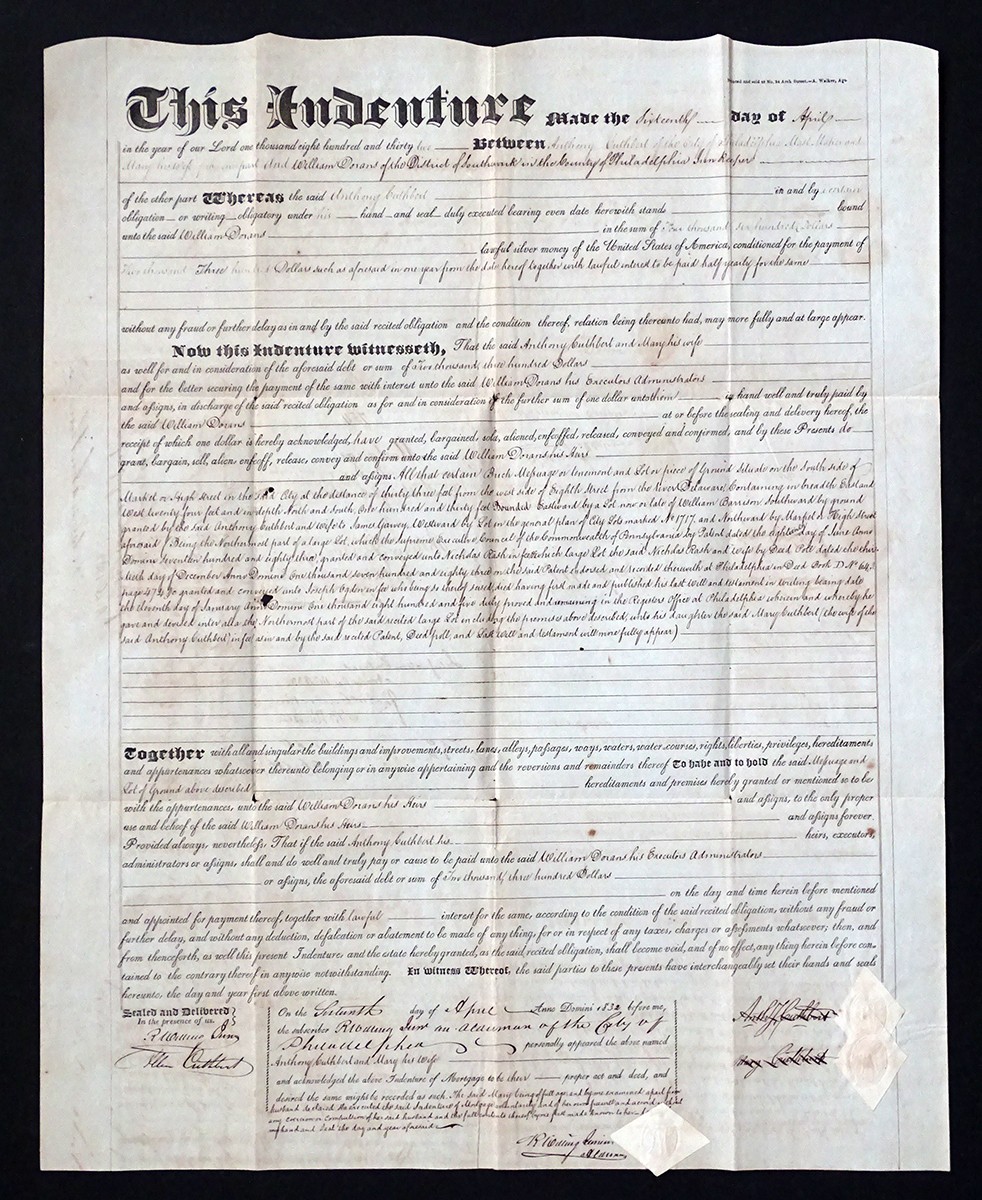 Printed and sold at No. 34 Arch Street.—A. Walker, Agt
This Indenture Made the Sixteenth day of April
in the year of our Lord one thousand eight hundred and thirty two Between Anthony Cuthbert of the City of Philadelphia Mast Maker and
Mary his wife of the one part And William Dorans of the District of Southwark in the County of Philadelphia Innkeeper
of the other part Whereas the said Anthony Cuthbert in and by a certain
obligation or writing obligatory under his hand and seal duly executed bearing even date herewith stands bound
unto the said William Dorans in the sum of Four thousand six hundred Dollars
lawful silver money of the United States of America, conditioned for the payment of
Two thousand Three hundred Dollars such as aforesaid in one year from the date hereof together with lawful interest to be paid half yearly for the same
without any fraud or further delay as in and by the said recited obligation and the condition thereof, relation being thereunto had, may more fully and at large appear.
Now this Indenture witnesseth, That the said Anthony Cuthbert and Mary his wife
as well for and in consideration of the aforesaid debt or sum of Two thousand, three hundred Dollars
and for the better securing the payment of the same with interest unto the said William Dorans his Executors Administrators
and assigns, in discharge of the said recited obligation as for and in consideration of the further sum of one dollar unto them in hand well and truly paid by
the said William Dorans at or before the sealing and delivery hereof, the
receipt of which one dollar is hereby acknowledged, have granted, bargained, sold, aliened, enfeoffed, released, conveyed and confirmed, and by these Presents do
grant, bargain, sell, alien, enfeoff, release, convey and confirm unto the said William Dorans his Heirs
and assigns All that certain Brick Messuage or tenement and Lot or piece of Ground Situate on the South side of
Market or High Street in the said City at the distance of thirty three feet from the west side of Eighth Street from the River Delaware; Containing in breadth East and
West twenty four feet and in depth North and South, One hundred and thirty feet Bounded Eastward by a Lot now or late of William Barrison Southward by ground
granted by the said Anthony Cuthbert and wife to James Garvey, Westward by Lot in the general plan of City Lots marked No. 1717, and Northward by Market or High Street
aforesaid (Being the Northernmost part of a large Lot, which the Supreme Executive Council of the Commonwealth of Pennsylvania by Patent dated the eighth day of June Anno
Domini Seventeen hundred and eighty three, granted and conveyed unto Nicholas Rash in fee which large Lot the said Nicholas Rash and wife by Deed Poll dated the thir-
tieth day of December Anno Domini One thousand seven hundred and eighty three on the said Patent Endorsed and recorded therewith at Philadelphia in Deed Book D. No.
page granted and conveyed unto Joseph Ogden in fee who being so thereof seised, died having first made and published his last Will and testament in Writing bearing date
the eleventh day of January Anno Domini One thousand eight hundred and five duly proved and remaining in the Registers Office at Philadelphia wherein and whereby he
gave and devised inter alia the Northernmost part of the said recited large Lot including the premises above described, unto his daughter the said Mary Cuthbert (the wife of the
said Anthony Cuthbert) in fee as in and by the said recited Patent, Deed poll, and Last Will and testament will more fully appear)
Together with all and singular the buildings and improvements, streets, lanes, alleys, passages, ways, waters, water-courses, rights, liberties, privileges, hereditaments
and appurtenances whatsoever thereunto belonging or in anywise appertaining and the reversions and remainders thereof To have and to hold the said Messuage and
Lot of Ground above described hereditaments and premises hereby granted or mentioned so to be
with the appurtenances, unto the said William Dorans his Heirs and assigns, to the only proper
use and behoof of the said William Dorans his Heirs and assigns forever
Provided always, nevertheless, That if the said Anthony Cuthbert his heirs, executors,
administrators or assigns, shall and do well and truly pay or cause to be paid unto the said William Dorans his Executors Administrators
or assigns, the aforesaid debt or sum of Two thousand, three hundred Dollars
on the day and time herein before mentioned
and appointed for payment thereof, together with lawful interest for the same, according to the condition of the said recited obligation, without any fraud or
further delay, and without any deduction, defalcation or abatement to be made of any thing, for or in respect of any taxes, charges or assessments whatsoever; then, and
from thenceforth, as well this present Indenture, and the estate hereby granted, as the said recited obligation, shall become void, and of no effect, any thing herein before con-
tained to the contrary thereof in anywise notwithstanding. In witness Whereof, the said parties to these presents have interchangeably set their hands and seals
hereunto, the day and year first above written.
Sealed and Delivered
In the presence of us.
R Willing Junr
Allen Cuthbert
On the Sixteenth day of April Anno Domini 1832 before me,
the subscriber R Willing Junr an Alderman of the City of
Philadelphia personally appeared the above named
Anthony Cuthbert and Mary his Wife
and acknowledged the above Indenture of Mortgage to be their proper act and deed, and
desired the same might be recorded as such. The said Mary being of full age and by me examined apart from
husband declared she executed the said Indenture of Mortgage voluntarily and of her own free will and accord without
any coercion or compulsion of her said husband and the full contents thereof by me first made known to her
hand and Seal the day and year aforesaid
R Willing Junior
Alderman
Anthy Cuthbert
Mary Cuthbert